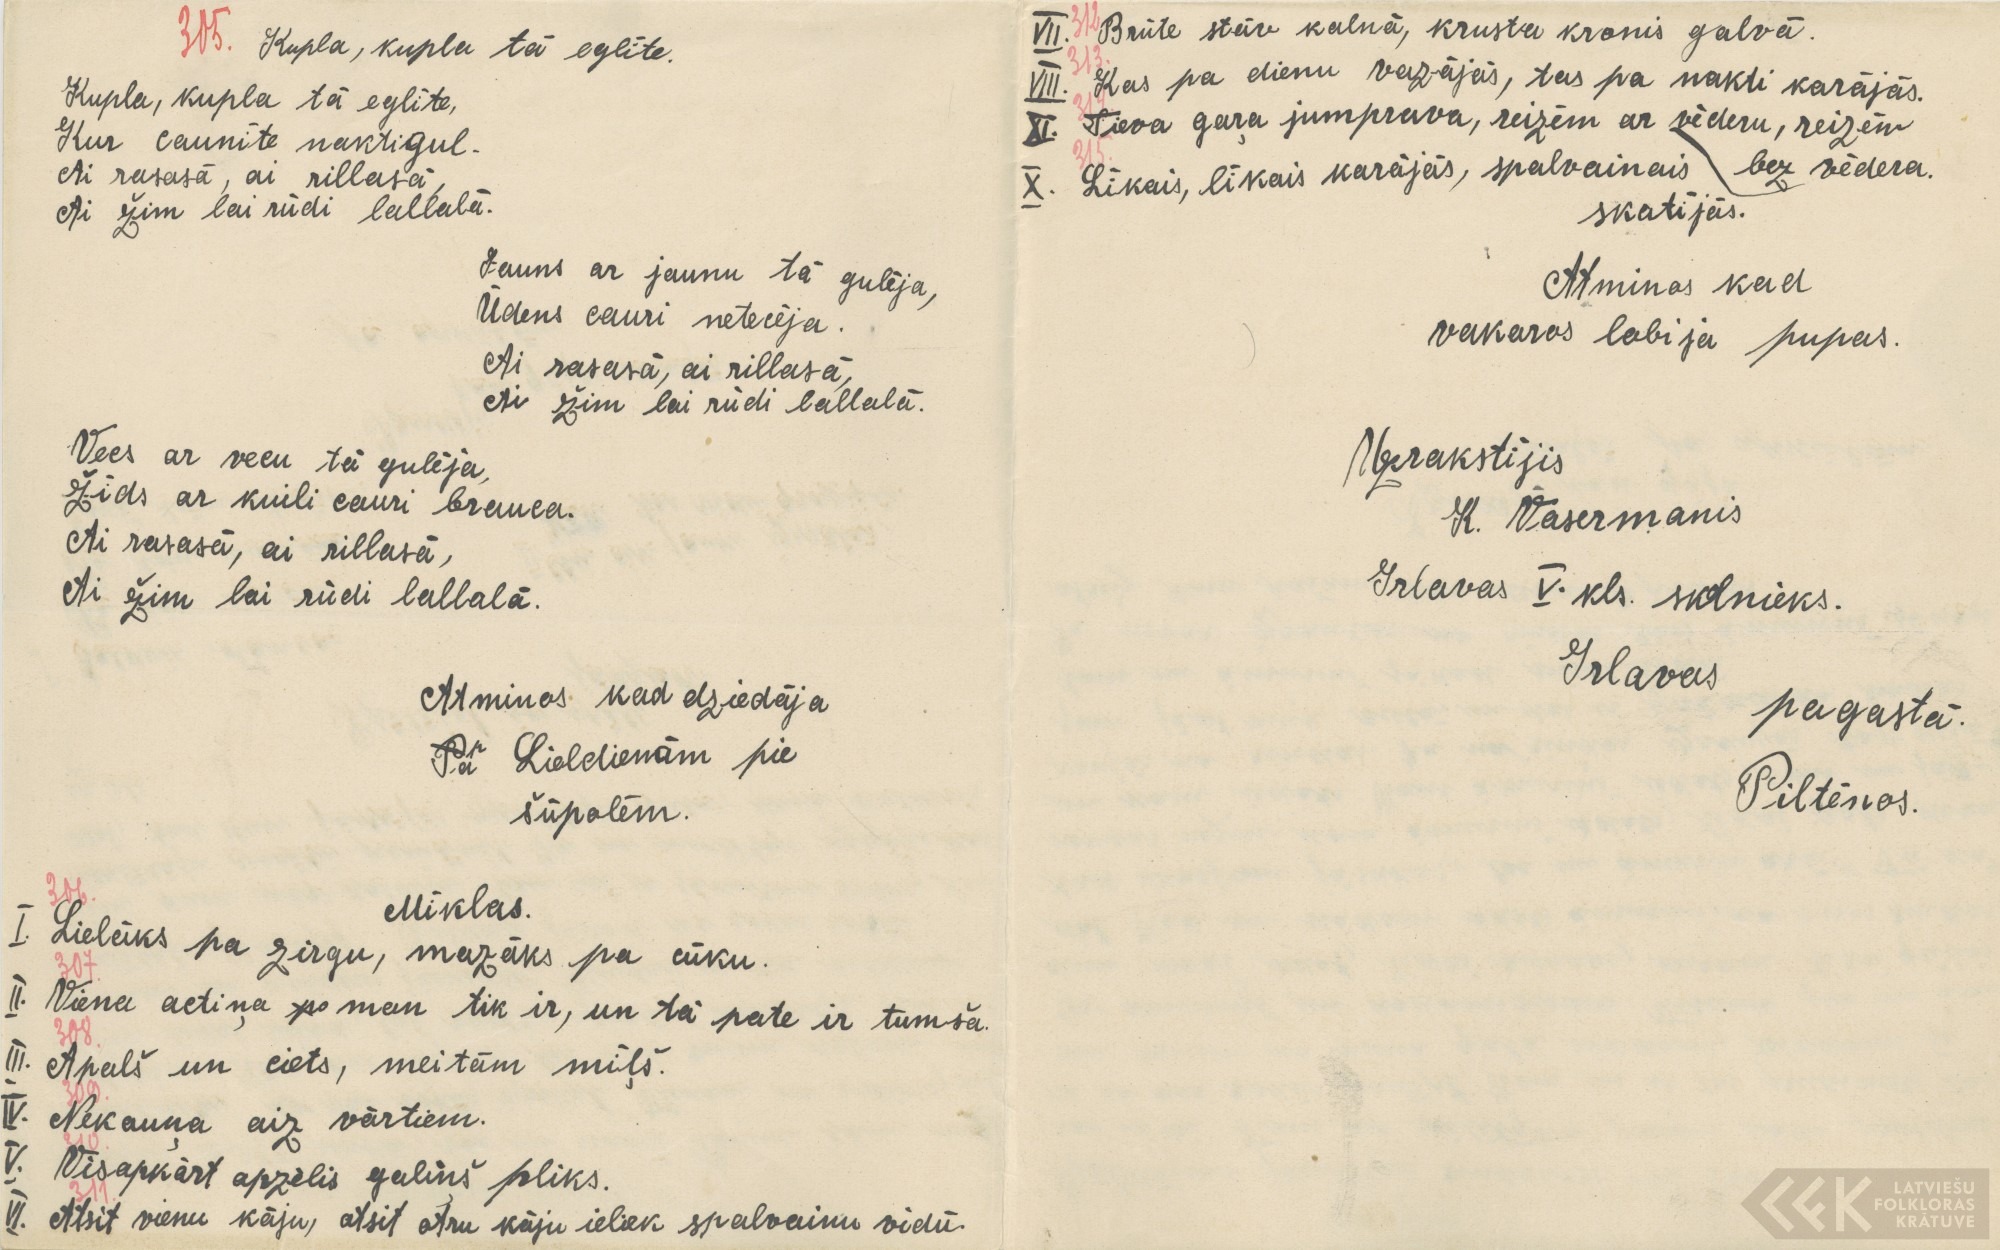 305. Kupla, kupla tā eglīte.
Kupla, kupla tā eglīte,
Kur caunīte naktigul.
Ai rasasā, ai rillasā,
Ai žim lai rūdi lallalā.
Jauns ar jaunu tā gulēja,
Ūdens cauri netecēja.
Ai rasasā, ai rillasā,
Ai žim lai rūdi lallalā.
Vecs ar vecu tā gulēja,
Žīds ar kuili cauri brauca.
Ai rasasā, ai rillasā,
Ai žim lai rūdi lallalā.
Atminos kad dziedāja
Pa Lieldienām pie
šūpolēm.
306.
Mīklas.
I. Lielāks pa zirgu, mazāks pa cūku.
307.
II. Viena actiņa man tik ir, un tā pate ir tumša.
308.
III. Apalš un ciets, meitām mīļš.
309.
IV. Nekauņa aiz vārtiem.
310.
V. Visapkārt apzēlis galiņš pliks.
311.
VI. Atsit vienu kāju, atsit otru kāju ieliek spalvainu vidū.
312.
VII. Brūte stāv kalnā, krusta kronis galvā.
313.
VIII. Kas pa dienu vazājās, tas pa nakti karājās.
314.
XI. Tieva gaŗa jumprava, reizēm ar vēderu, reizēm
bez vēdera.
315.
X. Līkais, līkais karājās, spalvainais
skatījās.
Atminos kad
vakaros lobija pupas.
Uzrakstījis
K. Vasermanis
Irlavas V. kls. skolnieks.
Irlavas
pagastā.
Piltēnos.
LATVIEŠU
FOLKLORAS
KRĀTUVE